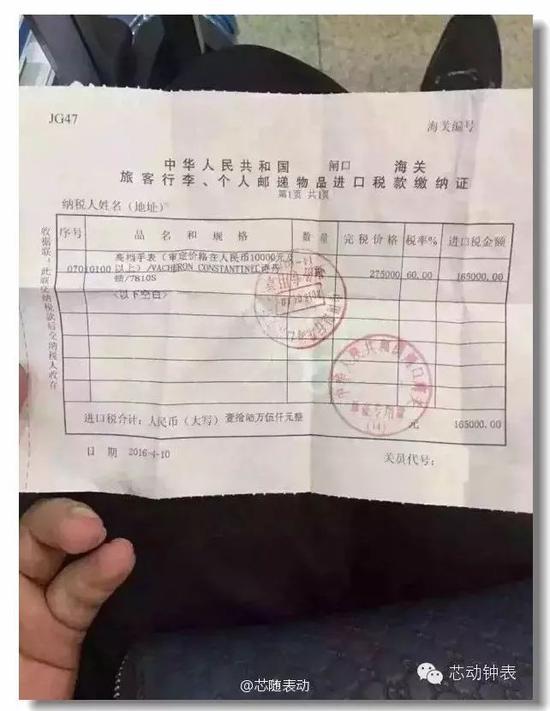 JG47
海关编号
中华人民共和国 闸口 海关
旅客行李、个人邮递物品进口税款缴纳证
第1页 共1页
纳税人姓名(地址)
序号 品名和规格 数量 完税价格 税率% 进口税金额
高档手表(审定价格在人民币10000元及
07010100 以上)/VACHERON CONSTANTINE 275000 60.00 165000.00
/7810S
(以下空白)
进口税合计:人民币(大写) 壹拾陆万伍仟元整 元 165000.00
日 期 2016-4-10 关员代号:
收据联:此联交纳税款后交纳税人收存
中华人民共和国闸口海关
单证专用章
(14)
@芯随表动
芯动钟表